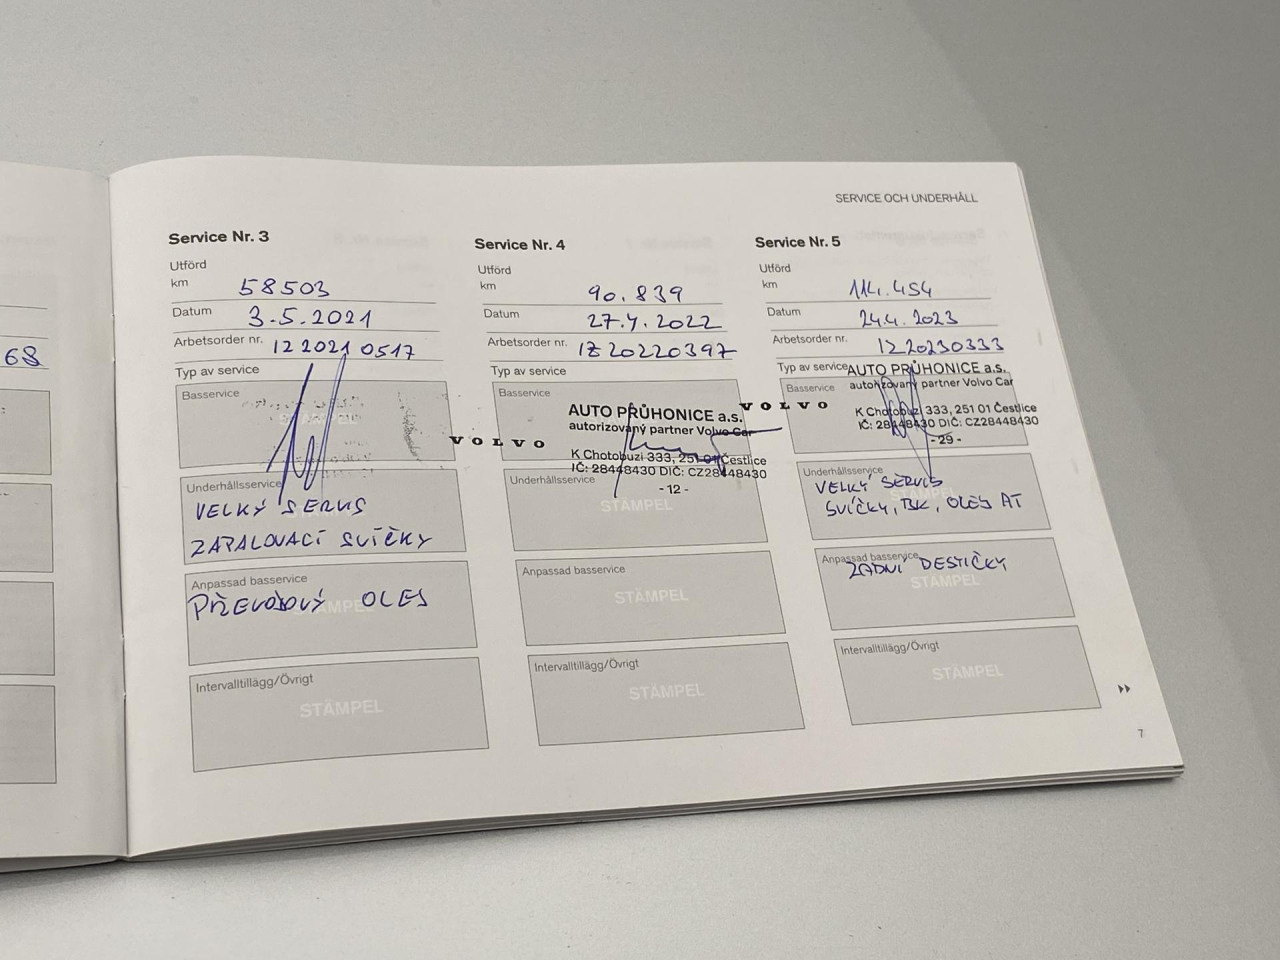 SERVICE OCH UNDERHÅLL
68
Service Nr. 3
Utförd
km 58503
Datum 3.5.2021
Arbetsorder nr. 12 2021 0517
Typ av service
Basservice
Underhållsservice
VELKÝ SERVIS
ZAPALOVACÍ SVÍČKY
Anpassad basservice
PŘEVODOVÝ OLEJ
STÄMPEL
Intervalltillägg/Övrigt
STÄMPEL
Service Nr. 4
Utförd
km 90.839
Datum 27.4.2022
Arbetsorder nr. 1220220397
Typ av service
Basservice
VOLVO
AUTO PRŮHONICE a.s.
autorizovaný partner Volvo Car
K Chotobuzi 333, 251 01 Čestlice
IČ: 28448430 DIČ: CZ28448430
- 12 -
Underhållsservice
STÄMPEL
Anpassad basservice
STÄMPEL
Intervalltillägg/Övrigt
STÄMPEL
Service Nr. 5
Utförd
km 114.454
Datum 24.4.2023
Arbetsorder nr. 1220230333
Typ av service
Basservice
VOLVO
AUTO PRŮHONICE a.s.
autorizovaný partner Volvo Car
K Chotobuzi 333, 251 01 Čestlice
IČ: 28448430 DIČ: CZ28448430
- 29 -
Underhållsservice
VELKÝ SERVIS
STÄMPEL
SVÍČKY, OLEJ AT
Anpassad basservice
ZADNÍ DESTIČKY
STÄMPEL
Intervalltillägg/Övrigt
STÄMPEL
7